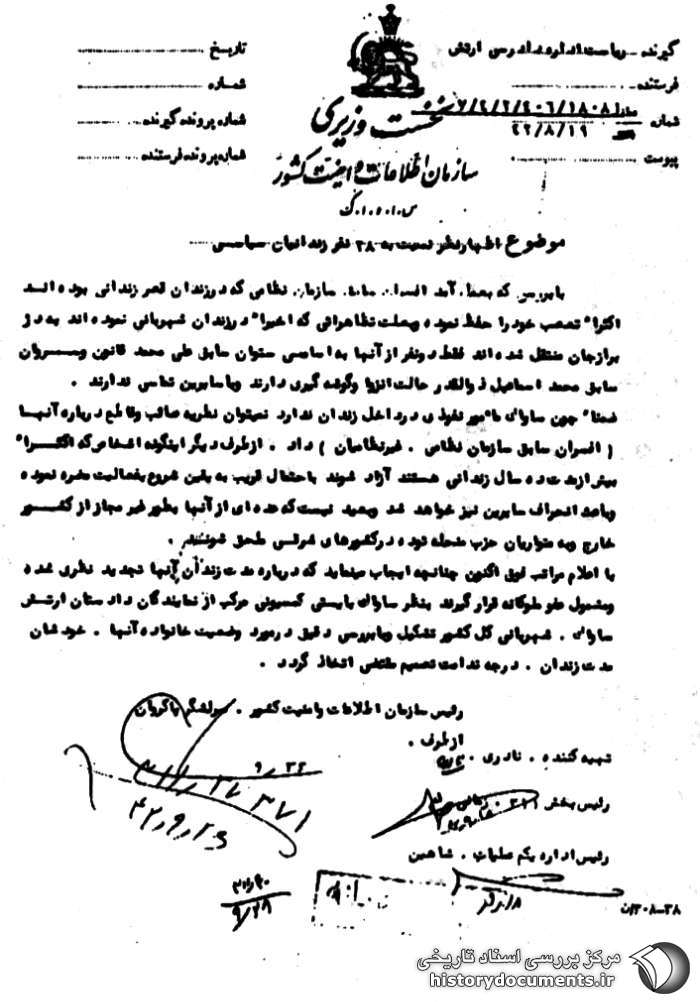 گیرنده ریاست اداره دادرسی ارتش
فرستنده
شماره ۷/۲/۲/۲۰۶/۱۸۰۸
۲۲/۸/۱۹
پیوست
تاریخ
شماره
شماره پرونده گیرنده
شماره پرونده فرستنده
نخست وزیری
سازمان اطلاعات و امنیت کشور
س.ا.و.ا.ک
موضوع اظهارنظر نسبت به ۳۸ نفر زندانیان سیاسی
با بررسی که بعمل آمد افسران سابق سازمان نظامی که در زندان قصر زندانی بوده اند
اکثرا" تعصب خود را حفظ نموده و بعلت تظاهراتی که اخیرا" در زندان شهربانی نموده اند به دژ
برازجان منتقل شده اند فقط دو نفر از آنها به اسامی ستوان سابق علی محمد قانون و سروان
سابق محمد اسماعیل ذوالقدر حالت انزوا و گوشه گیری دارند و با سایرین تماسی ندارند .
ضمنا" چون ساواک مامور نفوذی در داخل زندان ندارد نمیتوان نظریه صائب و قاطع درباره آنها
( افسران سابق سازمان نظامی . غیرنظامیان ) داد . از طرف دیگر اینگونه اشخاص که اکثرا"
بیش از مدت ده سال زندانی هستند آزاد شوند با احتمال قریب به یقین شروع بفعالیت مضره نموده
و باعث انحراف سایرین نیز خواهد شد و بعید نیست که عده ای از آنها بطور غیر مجاز از کشور
خارج و به متواریان حزب منحله توده در کشورهای شرقی ملحق شوند .
با اعلام مراتب فوق اکنون چنانچه ایجاب مینماید که درباره مدت زندان آنها تجدید نظری شده
و مشمول عفو ملوکانه قرار گیرند بنظر ساواک بایستی کمسیونی مرکب از نمایندگان دادستان ارتش
ساواک . شهربانی کل کشور تشکیل و با بررسی دقیق در مورد وضعیت خانواده آنها . خودشان
مدت زندان . درجه ندامت تصمیم مقتضی اتخاذ گردد .
رئیس سازمان اطلاعات و امنیت کشور . سرلشگر پاکروان
از طرف .
تهیه کننده . نادری .
رئیس بخش ۳۱۱ .
رئیس اداره یکم عملیات . شاهین
۴۲,۹,۲۵
۹/۲۸
مرکز بررسی اسناد تاریخی
historydocuments.ir